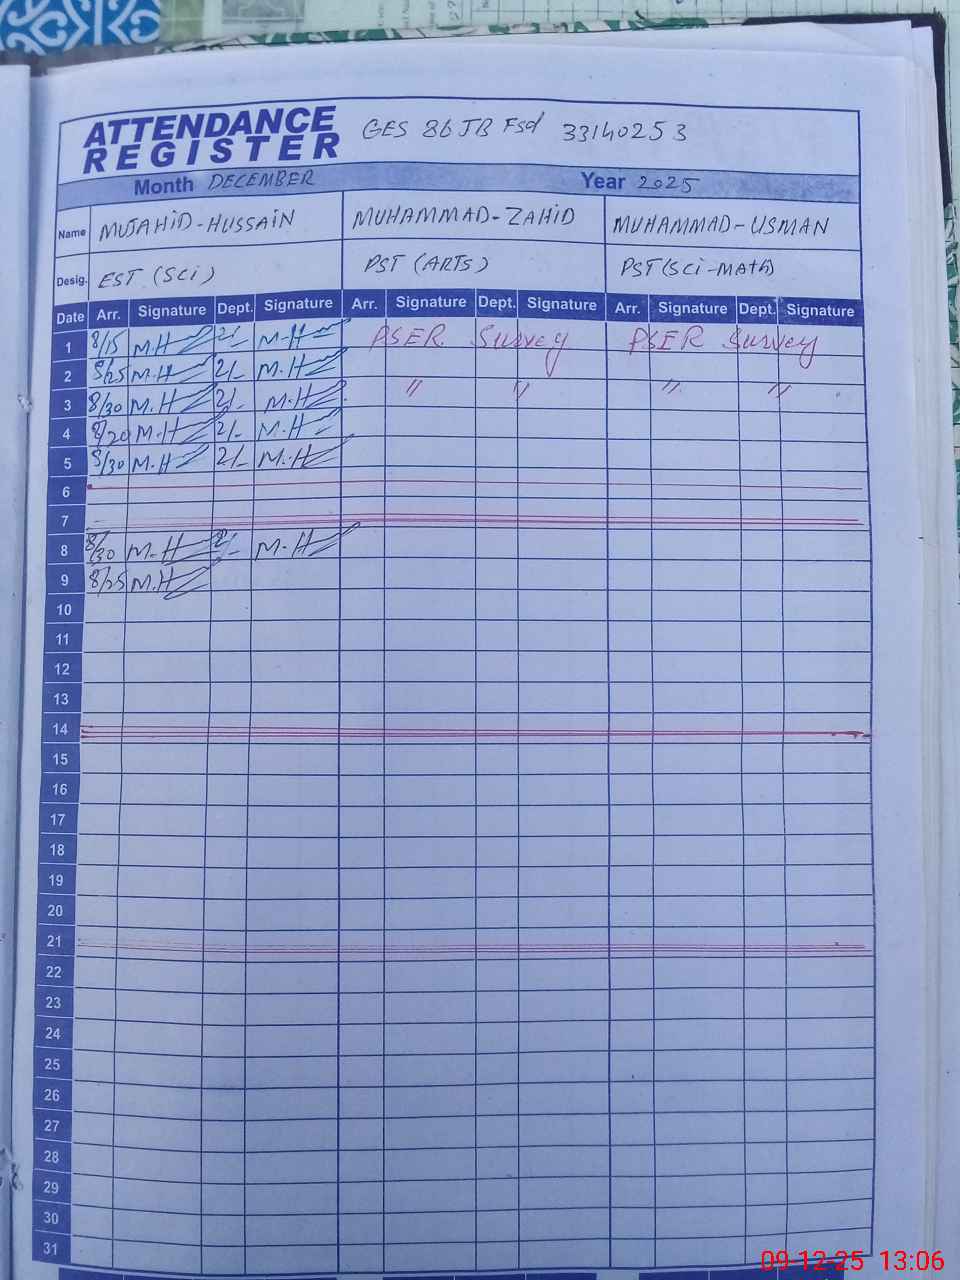 ATTENDANCE REGISTER GES 86 JB Fsd 33140253
Month DECEMBER Year 2025
Name MUJAHID-HUSSAIN MUHAMMAD-ZAHID MUHAMMAD-USMAN
Desig. EST (SCi) PST (ARTS) PST (SCi-MATH)
Date Arr. Signature Dept. Signature Arr. Signature Dept. Signature Arr. Signature Dept. Signature
1 8/15 M.H 2/- M.H PSER Survey PSER Survey
2 8/25 M.H 2/- M.H
3 8/30 M.H 2/- M.H " " " "
4 8/20 M.H 2/- M.H
5 8/30 M.H 2/- M.H
6
7
8 8/30 M.H 2/- M.H
9 8/25 M.H
10
11
12
13
14
15
16
17
18
19
20
21
22
23
24
25
26
27
28
29
30
31
09-12-25 13:06